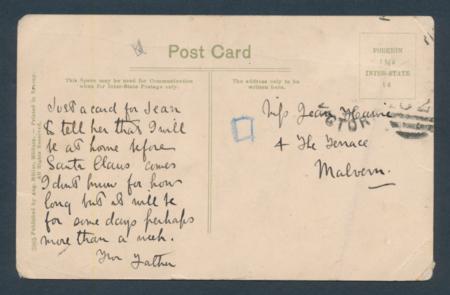 Post Card
This Space may be used for Communication
when for Inter-State Postage only.
The address only to be
written here.
FOREIGN
1½d
INTER-STATE
1d
Just a card for Jean
& tell her that I will
be at home before
Santa Claus comes
I dont know for how
long but it will be
for some days perhaps
more than a week.
Your Father
Miss Jean
4 The Terrace
Malvern.
Published by Aug. Printed in
All Rights Reserved.